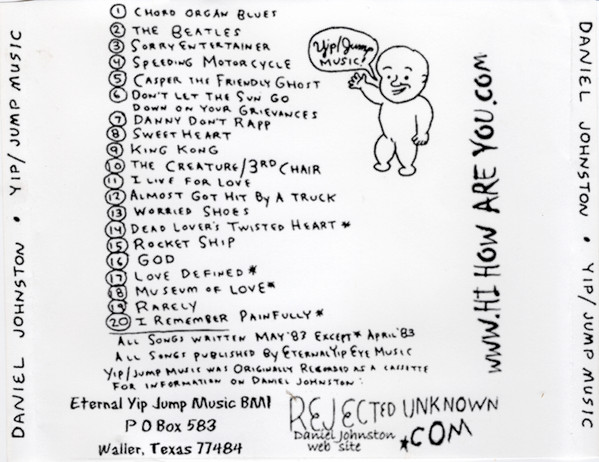 DANIEL JOHNSTON • YIP/JUMP MUSIC
① CHORD ORGAN BLUES
② THE BEATLES
③ SORRY ENTERTAINER
④ SPEEDING MOTORCYCLE
⑤ CASPER THE FRIENDLY GHOST
⑥ DON'T LET THE SUN GO
DOWN ON YOUR GRIEVANCES
⑦ DANNY DON'T RAPP
⑧ SWEETHEART
⑨ KING KONG
⑩ THE CREATURE/3RD CHAIR
⑪ I LIVE FOR LOVE
⑫ ALMOST GOT HIT BY A TRUCK
⑬ WORRIED SHOES
⑭ DEAD LOVER'S TWISTED HEART *
⑮ ROCKET SHIP
⑯ GOD
⑰ LOVE DEFINED *
⑱ MUSEUM OF LOVE *
⑲ RARELY
⑳ I REMEMBER PAINFULLY *
ALL SONGS WRITTEN MAY '83 EXCEPT * APRIL '83
ALL SONGS PUBLISHED BY ETERNAL YIP EYE MUSIC
YIP/JUMP MUSIC WAS ORIGINALLY RECORDED AS A CASSETTE
FOR INFORMATION ON DANIEL JOHNSTON:
Eternal Yip Jump Music BMI
P O Box 583
Waller, Texas 77484
REJECTED UNKNOWN
*COM
Daniel Johnston
web site
Yip/Jump
MUSIC!
WWW.HI HOW ARE YOU.COM
DANIEL JOHNSTON • YIP/JUMP MUSIC